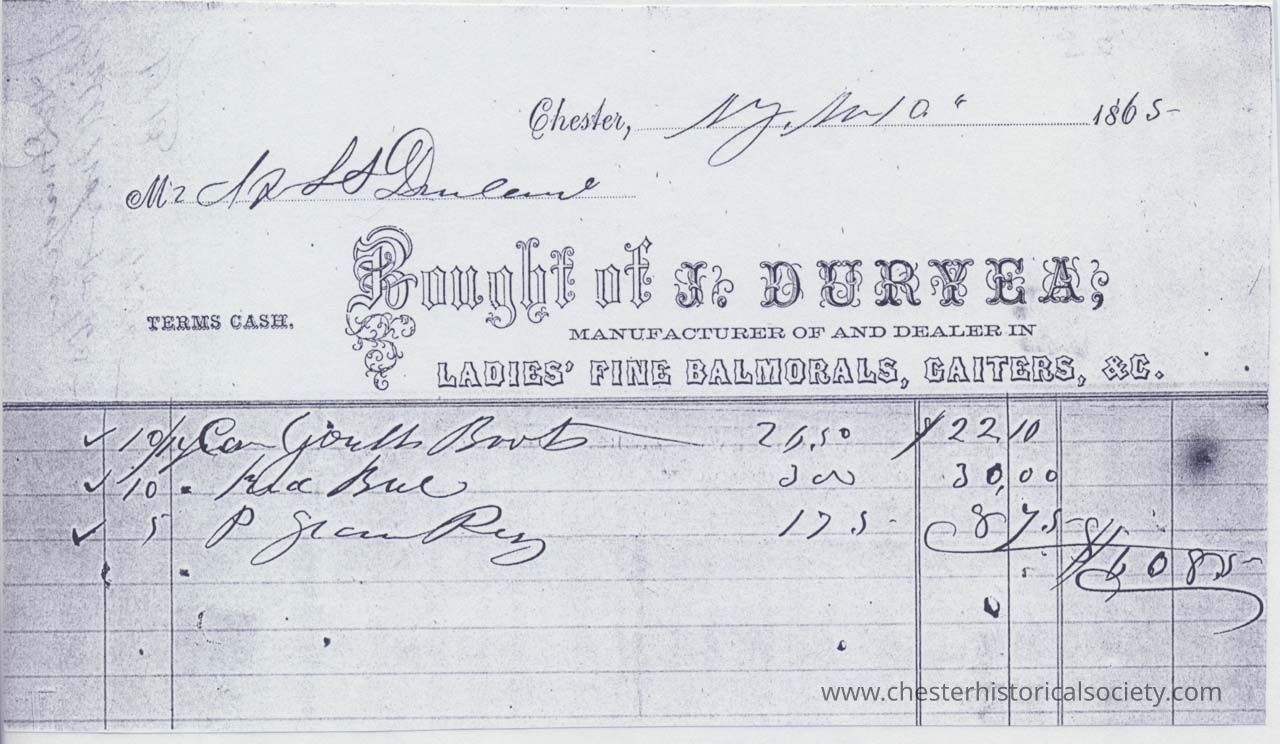 Chester, NY, 1865
Mr Durland
Bought of J. DURYEA,
TERMS CASH.
MANUFACTURER OF AND DEALER IN
LADIES' FINE BALMORALS, GAITERS, &C.
10/12 Youths Boots 26.50 $22 10
10 " Kid 300 30,00
5 P 175 8 75
$60 85
www.chesterhistoricalsociety.com